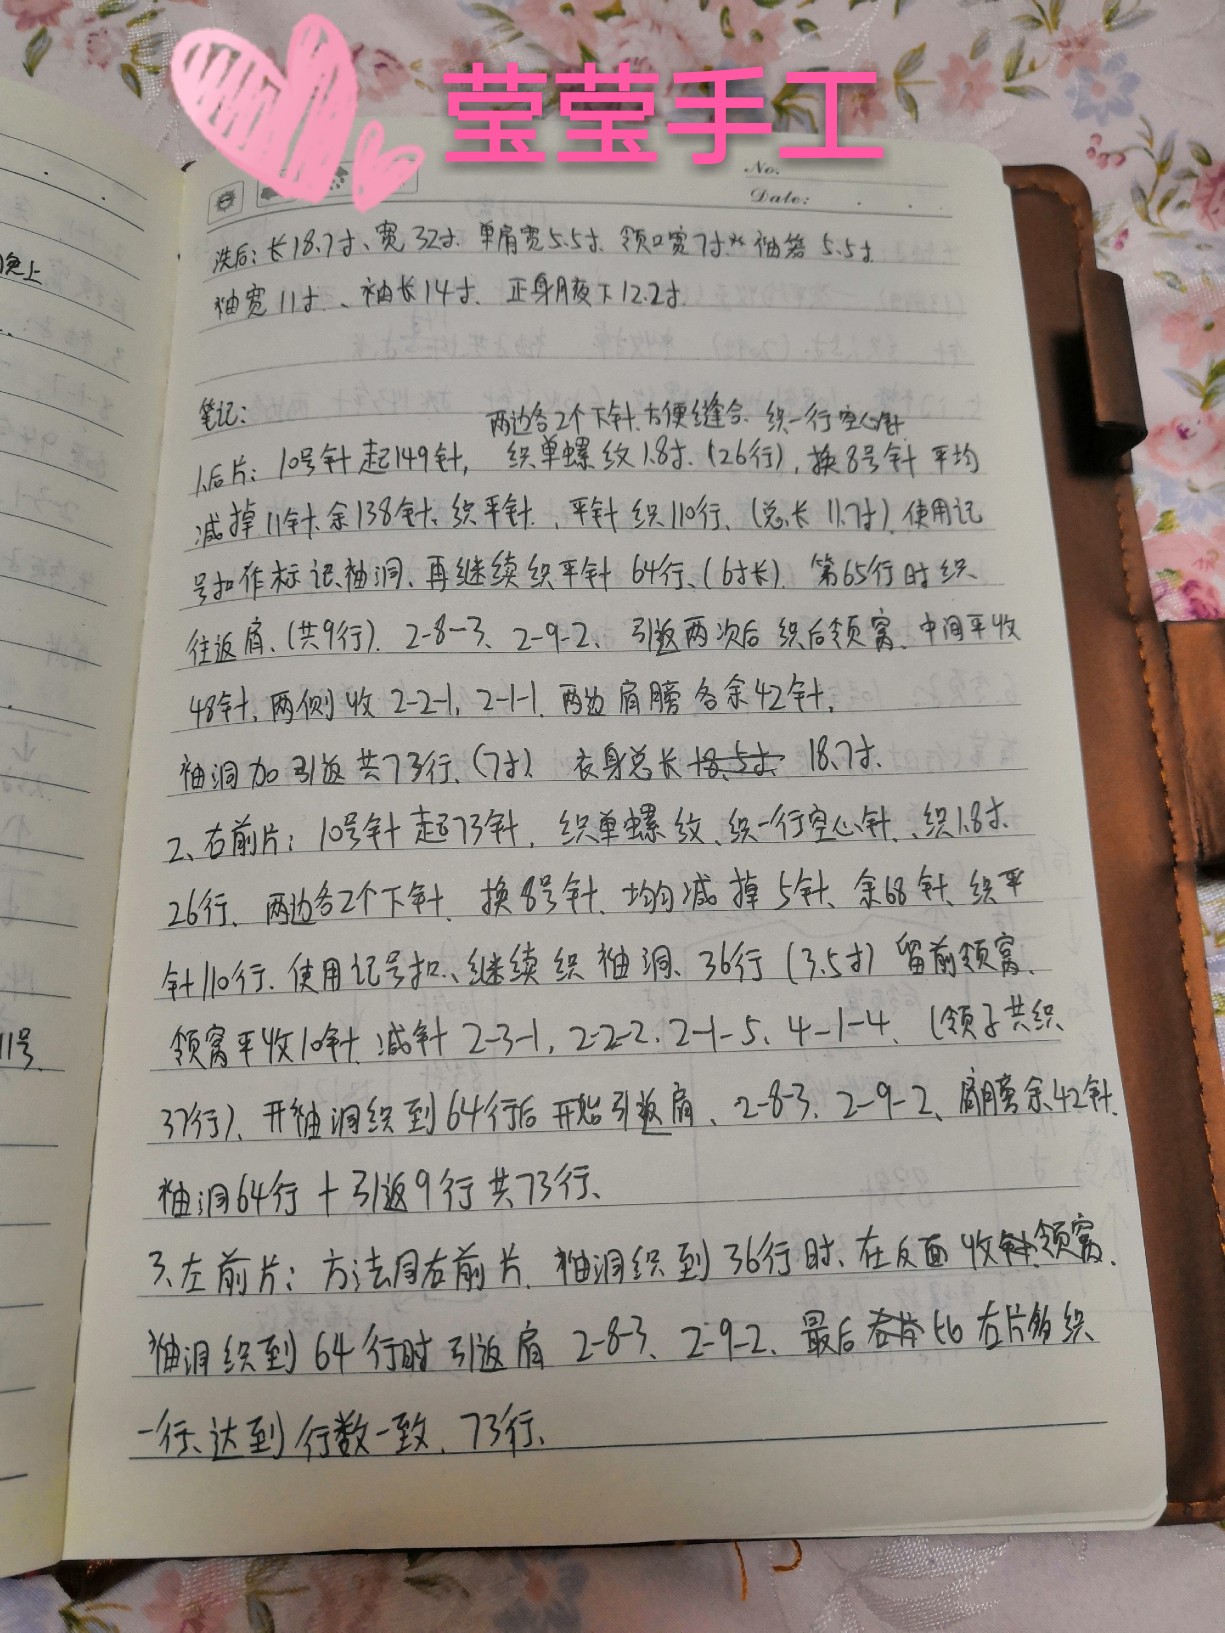 莹莹手工
No.
Date:
洗后：长18.7寸、宽32寸. 单肩宽5.5寸. 领口宽7寸 袖笼 5.5寸
袖宽11寸、袖长14寸. 正身腋下12.2寸.
笔记：
两边各2个下针. 方便缝合. 织一行空心针
1.后片：10号针起149针, 织单螺纹1.8寸. (26行), 换8号针 平均
减掉11针. 余138针. 织平针. 平针织110行、(总长 11.7寸) 使用记
号扣作标记袖洞. 再继续织平针 64行、(6寸长). 第65行时织
往返肩、(共9行). 2-8-3. 2-9-2、引返两次后 织后领窝. 中间平收
48针, 两侧收 2-2-1, 2-1-1. 两边肩膀各余42针,
袖洞加引返共73行、(7寸) 衣身总长 18.5寸. 18.7寸.
2、右前片：10号针起73针, 织单螺纹、织一行空心针、织1.8寸.
26行、两边各2个下针、换8号针、均减掉5针、余68针、织平
针110行. 使用记号扣、继续织袖洞、36行 (3.5寸) 留前领窝.
领窝平收10针. 减针 2-3-1, 2-2-2, 2-1-5、4-1-4、(领子共织
37行)、开袖洞织到64行后开始引返肩、2-8-3. 2-9-2、肩膀余42针.
袖洞64行 + 引返9行共73行、
3、左前片：方法同右前片. 袖洞织到36行时、在反面收针领窝.
袖洞织到64行时引返肩 2-8-3、2-9-2、最后 比右片多织
一行、达到行数一致. 73行、
晚上
11号